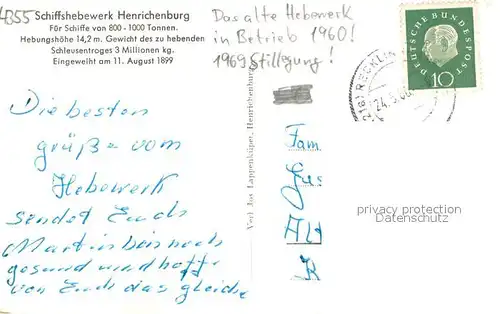 4355
Schiffshebewerk Henrichenburg
Für Schiffe von 800 - 1000 Tonnen.
Hebungshöhe 14,2 m. Gewicht des zu hebenden
Schleusentroges 3 Millionen kg.
Eingeweiht am 11. August 1899
Das alte Hebewerk
in Betrieb 1960!
1969 Stillegung!
DEUTSCHE BUNDESPOST
10
(21a) RECKLIN
24.5.60
Die besten
grüße vom
Hebewerk
sendet Euch
Martin bei noch
gesund und hoffe
von Euch das gleiche
Verl. Jos. Lappenküper, Henrichenburg
Fam
Gus
Alt
privacy protection
Datenschutz